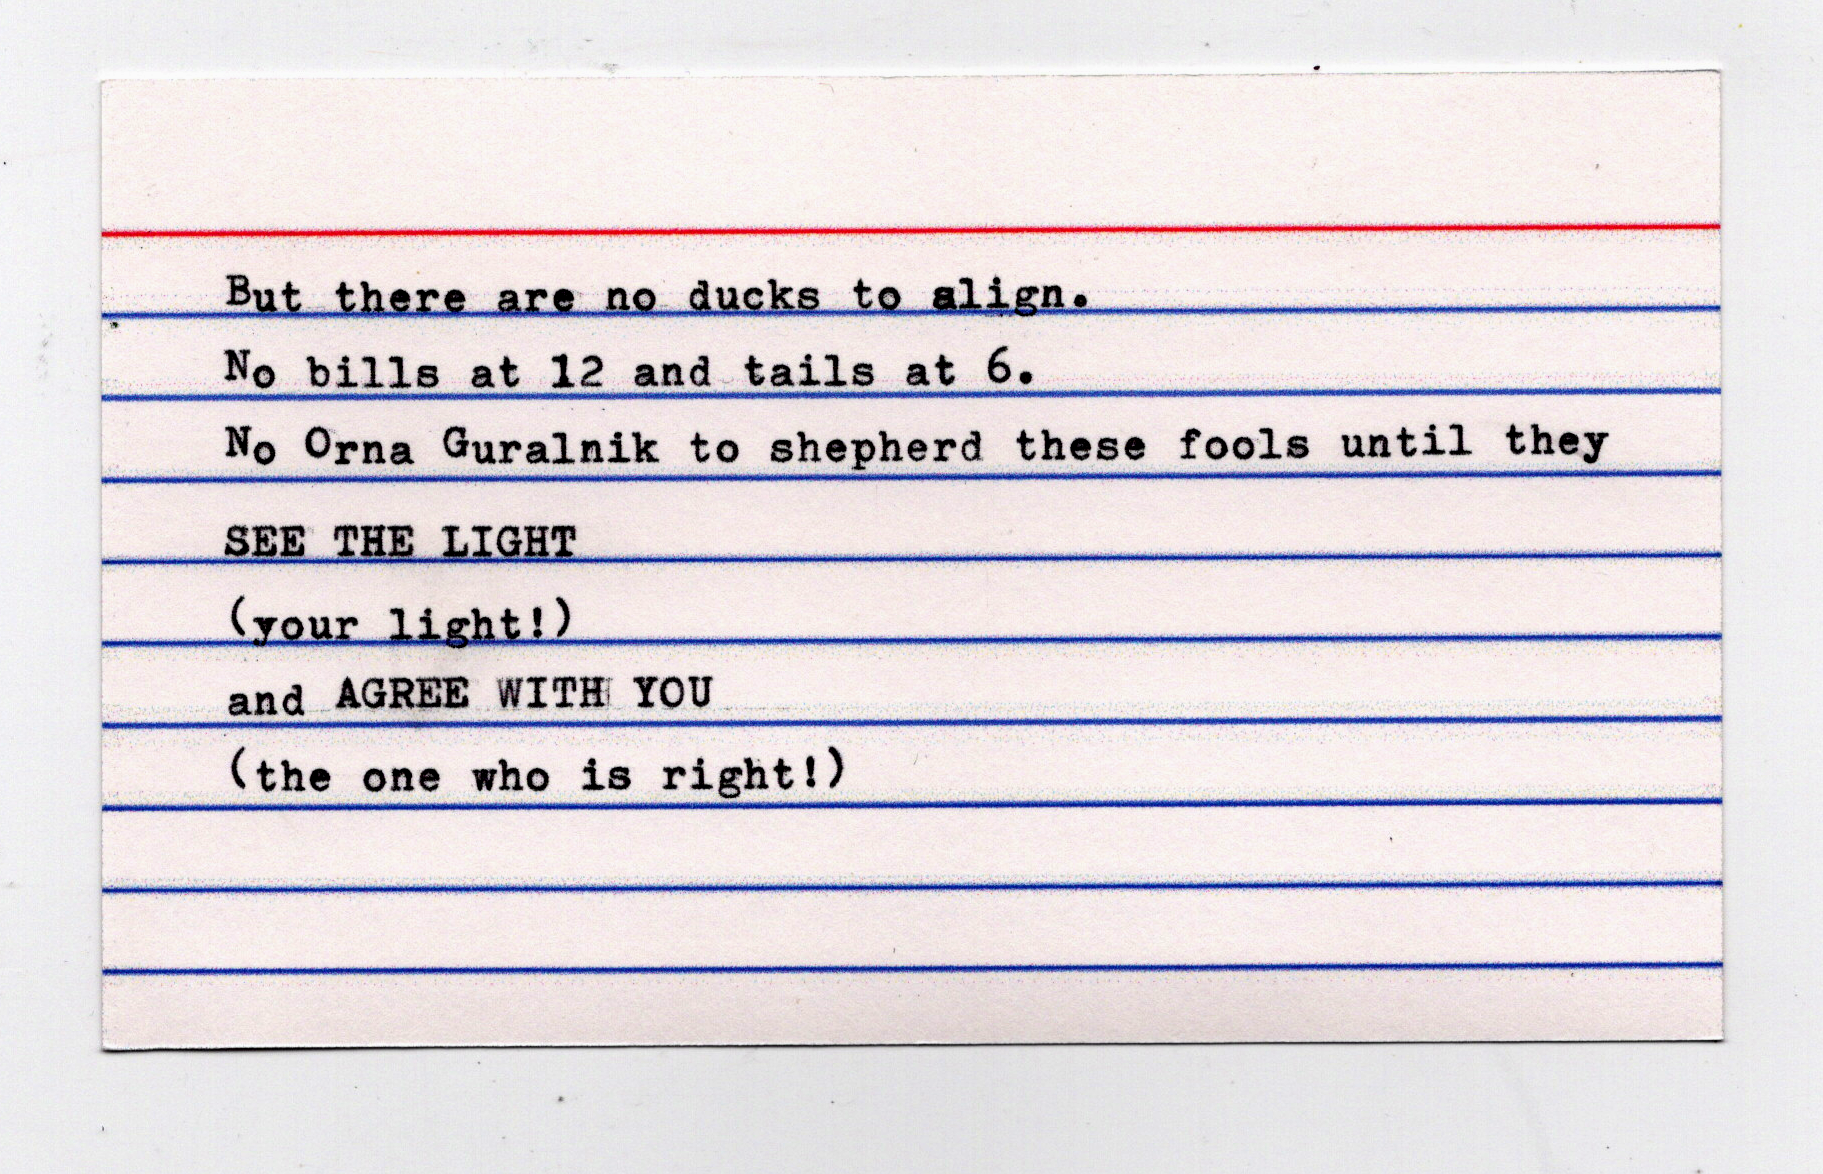 But there are no ducks to align.
No bills at 12 and tails at 6.
No Orna Guralnik to shepherd these fools until they
SEE THE LIGHT
(your light!)
and AGREE WITH YOU
(the one who is right!)